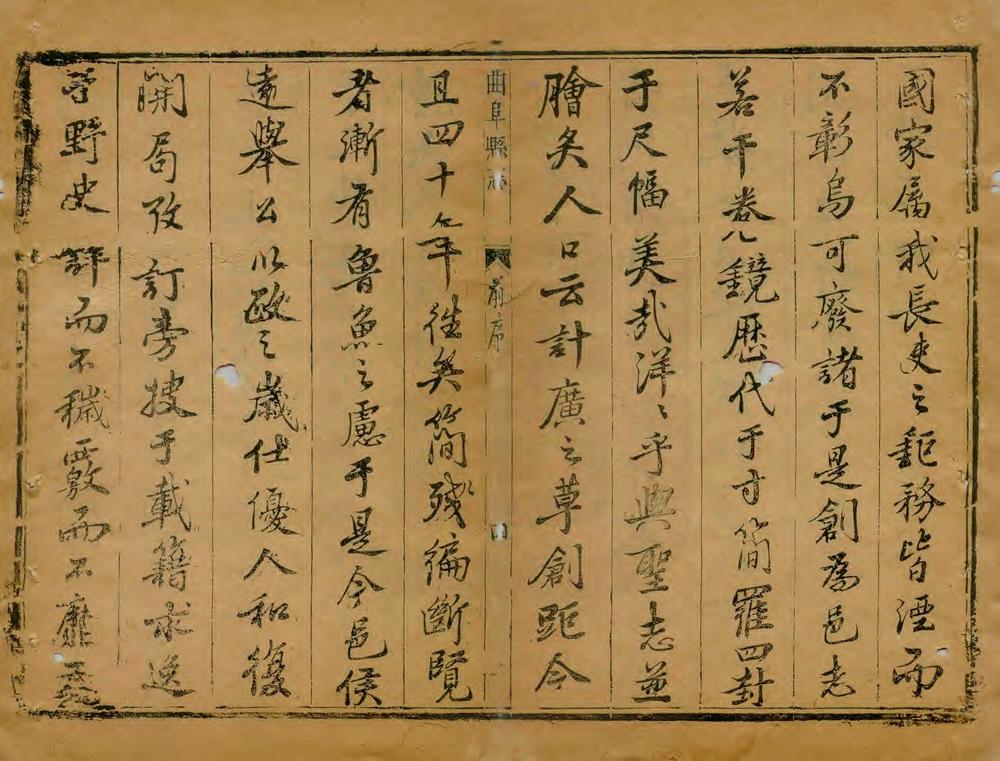 國家属我長吏之鉅務皆湮而
不彰烏可廢諸于是創為邑志
若干卷鏡歷代于寸簡羅四封
于尺幅美哉洋〻乎與聖志並
膾炙人口云計廣之草創距今
曲阜縣志 前序 四
且四十年徃矣簡殘編斷覽
者漸有魯魚之慮于是今邑侯
遠舉公以歐之歲仕優人和復
開局攷訂旁搜于載籍求逸
野史詳而不穢覈而不靡